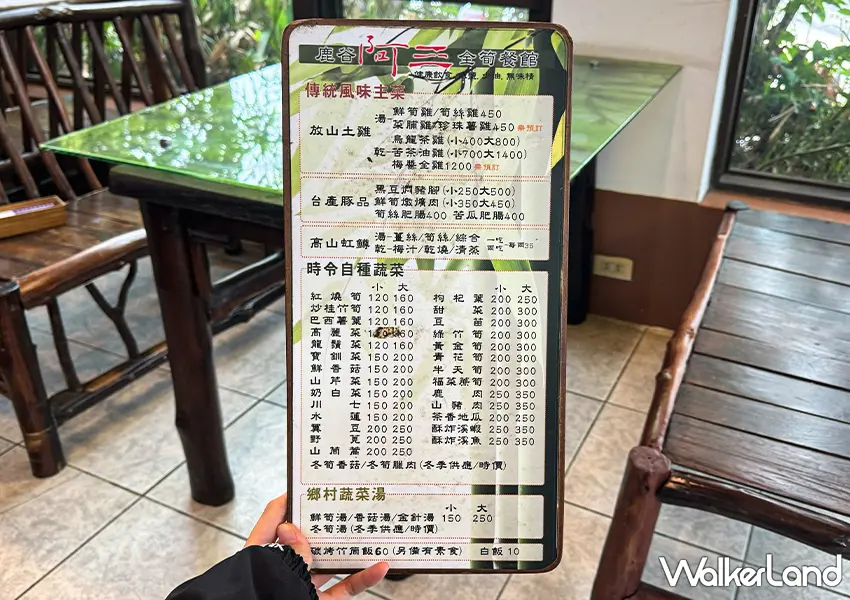 鹿谷阿三全筍餐館
傳統風味主菜
放山土雞
湯-鮮筍雞/筍絲雞450
菜脯雞/珍珠薯雞450 需預訂
烏龍茶雞(小400大800)
乾-苦茶油雞(小700大1400)
梅醬全雞1200 需預訂
台產豚品
黑豆燜豬腳(小250大500)
鮮筍燉爌肉(小350大450)
筍絲肥腸400 苦瓜肥腸400
高山虹鱒
湯-薑絲/筍絲/綜合 一吃
乾-梅汁/乾燒/清蒸 兩吃-每兩35
時令自種蔬菜
小 大
紅燒筍 120 160
炒桂竹筍 120 160
巴西薯葉 120 160
高麗菜 120 160
龍鬚菜 120 160
寶釧菜 150 200
鮮香菇 150 200
山芹菜 150 200
奶白菜 150 200
川七 150 200
水蓮 150 200
翼豆 200 250
野莧 200 250
山茼蒿 200 250
小 大
枸杞葉 200 250
甜菜 200 300
豆苗 200 300
綠竹筍 200 300
黃金筍 200 300
青花筍 200 300
半天筍 200 300
福菜桊筍 200 300
鹿肉 250 350
山豬肉 250 350
茶香地瓜 200 250
酥炸溪蝦 250 350
酥炸溪魚 250 350
冬筍香菇/冬筍臘肉(冬季供應/時價)
鄉村蔬菜湯
小 大
鮮筍湯/香菇湯/金針湯 150 250
冬筍湯(冬季供應/時價)
碳烤竹筒飯60(另備有素食) 白飯10
WalkerLand